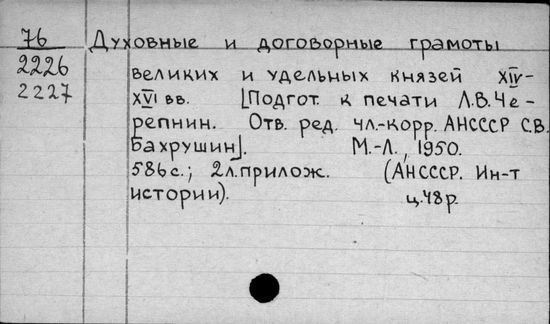 76 Духовные и договорные грамоты
2226
великих и удельных князей XIV-
2227
XVI вв. [Подгот. к печати Л.В.Че-
репнин. Отв. ред. чл.-корр. АНСССР С.В.
Бахрушин]. М.-Л., 1950.
586с.; 2л.прилож. (АНСССР. Ин-т
истории). ц.48р.